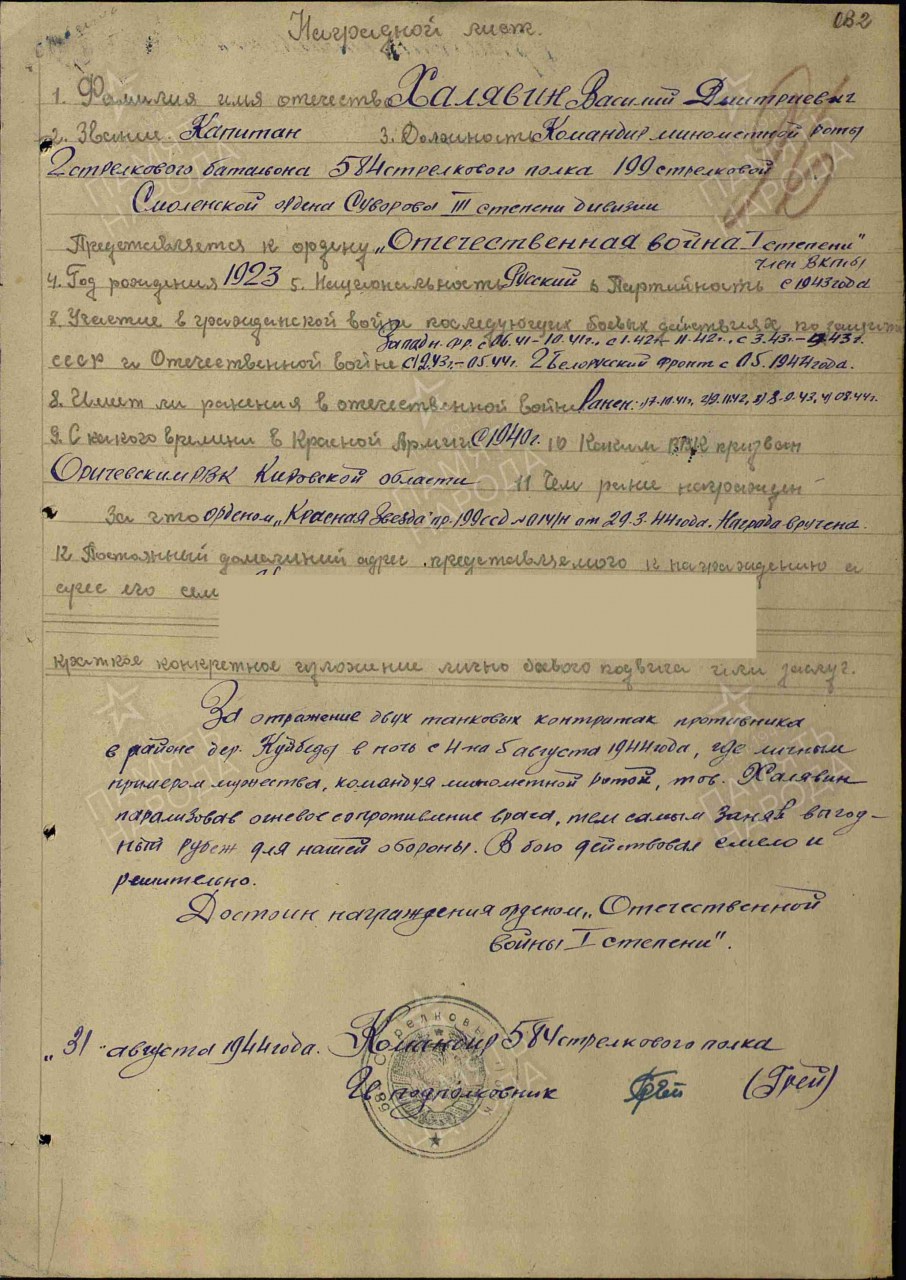 082
Наградной лист.
1. Фамилия имя отчество Халявин Василий Дмитриевич
2. Звание Капитан 3. Должность Командир минометной роты
2 стрелкового батальона 584 стрелкового полка 199 стрелковой
Смоленской ордена Суворова III степени дивизии
Представляется к ордену „Отечественная война I степени"
член ВКП(б)
4. Год рождения 1923 5. Национальность Русский 6 Партийность с 1943 года
8. Участие в гражданской войне последующих боевых действиях по защите
Западн. фр. с 06.41-10.41г., с 1.42-11.42г., с 3.43.-
СССР и Отечественной войне 05.44г. 2 Белорусский фронт с 05.1944 года.
8. Имеет ли ранения в отечественной войне Ранен: 1) 7.10.41г, 2) 9.11.42, 3) 8.9.43, 4) 08.44г.
9. С какого времени в Красной Армии с 1940г. 10 Каким РВК призван
Оричевским РВК Кировской области 11 Чем ранее награжден
За что орденом „Красная Звезда" пр. 199 ссд № 014/н от 29.3.44 года. Награда вручена.
12. Постоянный домашний адрес представляемого к награждению и
адрес его
краткое конкретное изложение лично боевого подвига или заслуг.
За отражение двух танковых контратак противника
в районе дер. в ночь с 4 на 5 августа 1944 года, где личным
примером мужества, командуя минометной ротой, тов. Халявин
парализовав огневое сопротивление врага, тем самым заняв выгод-
ный рубеж для нашей обороны. В бою действовал смело и
решительно.
Достоин награждения орденом „Отечественной
войны I степени".
„31" августа 1944 года. Командир 584 стрелкового полка
Гв. подполковник (Грей)
ПАМЯТЬ НАРОДА